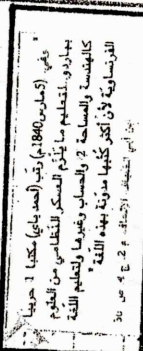 وفي (5مارس1840م) رتب (أحمد باي) مكتبا 1 حربيا
بباردو لتعليم ما يلزم العسكر النظامي من العلوم
كالهندسة والمساحة 2 والحساب وغيرها ولتعليم اللغة
الفرنساوية لأن أكثر كتبها مدونة بهذه اللغة"
ابن أبي الضياف، الإتحاف م 2، ج 4 ص